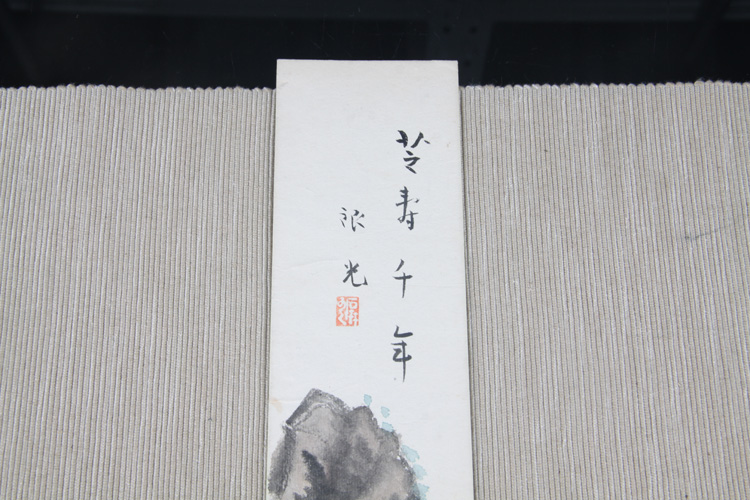 芝寿千年
光